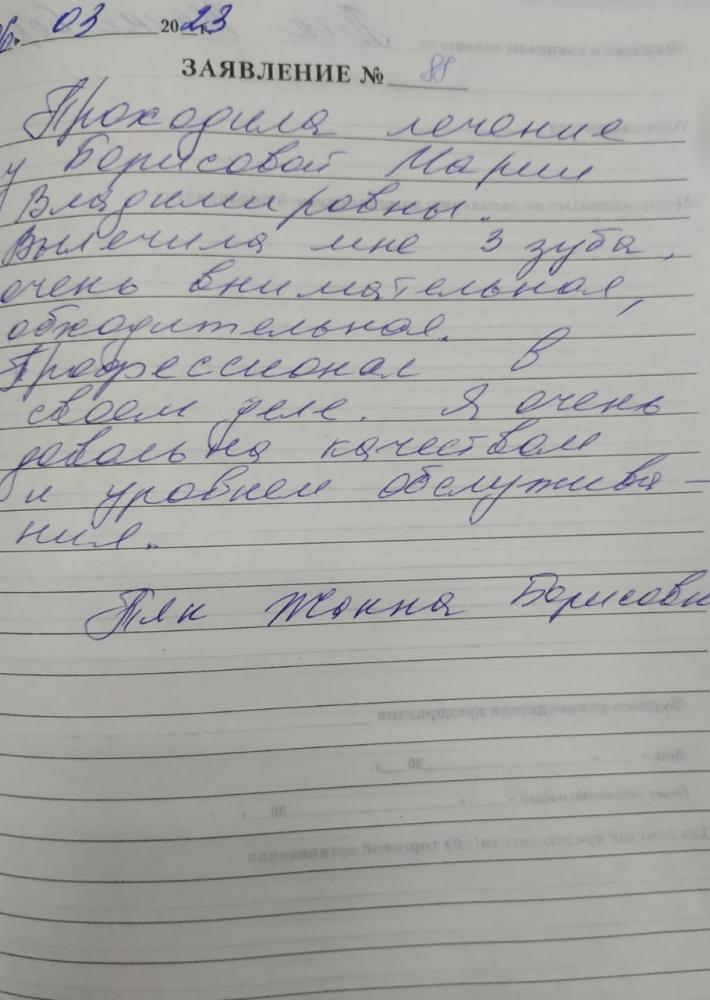 6. 03 2023 г.
ЗАЯВЛЕНИЕ № 88
Проходила лечение
у Борисовой Марии
Владимировны.
Вылечила мне 3 зуба,
очень внимательная,
обходительная.
Профессионал в
своем деле. Я очень
довольна качеством
и уровнем обслужива-
ния.
Пяк Жанна Борисовн